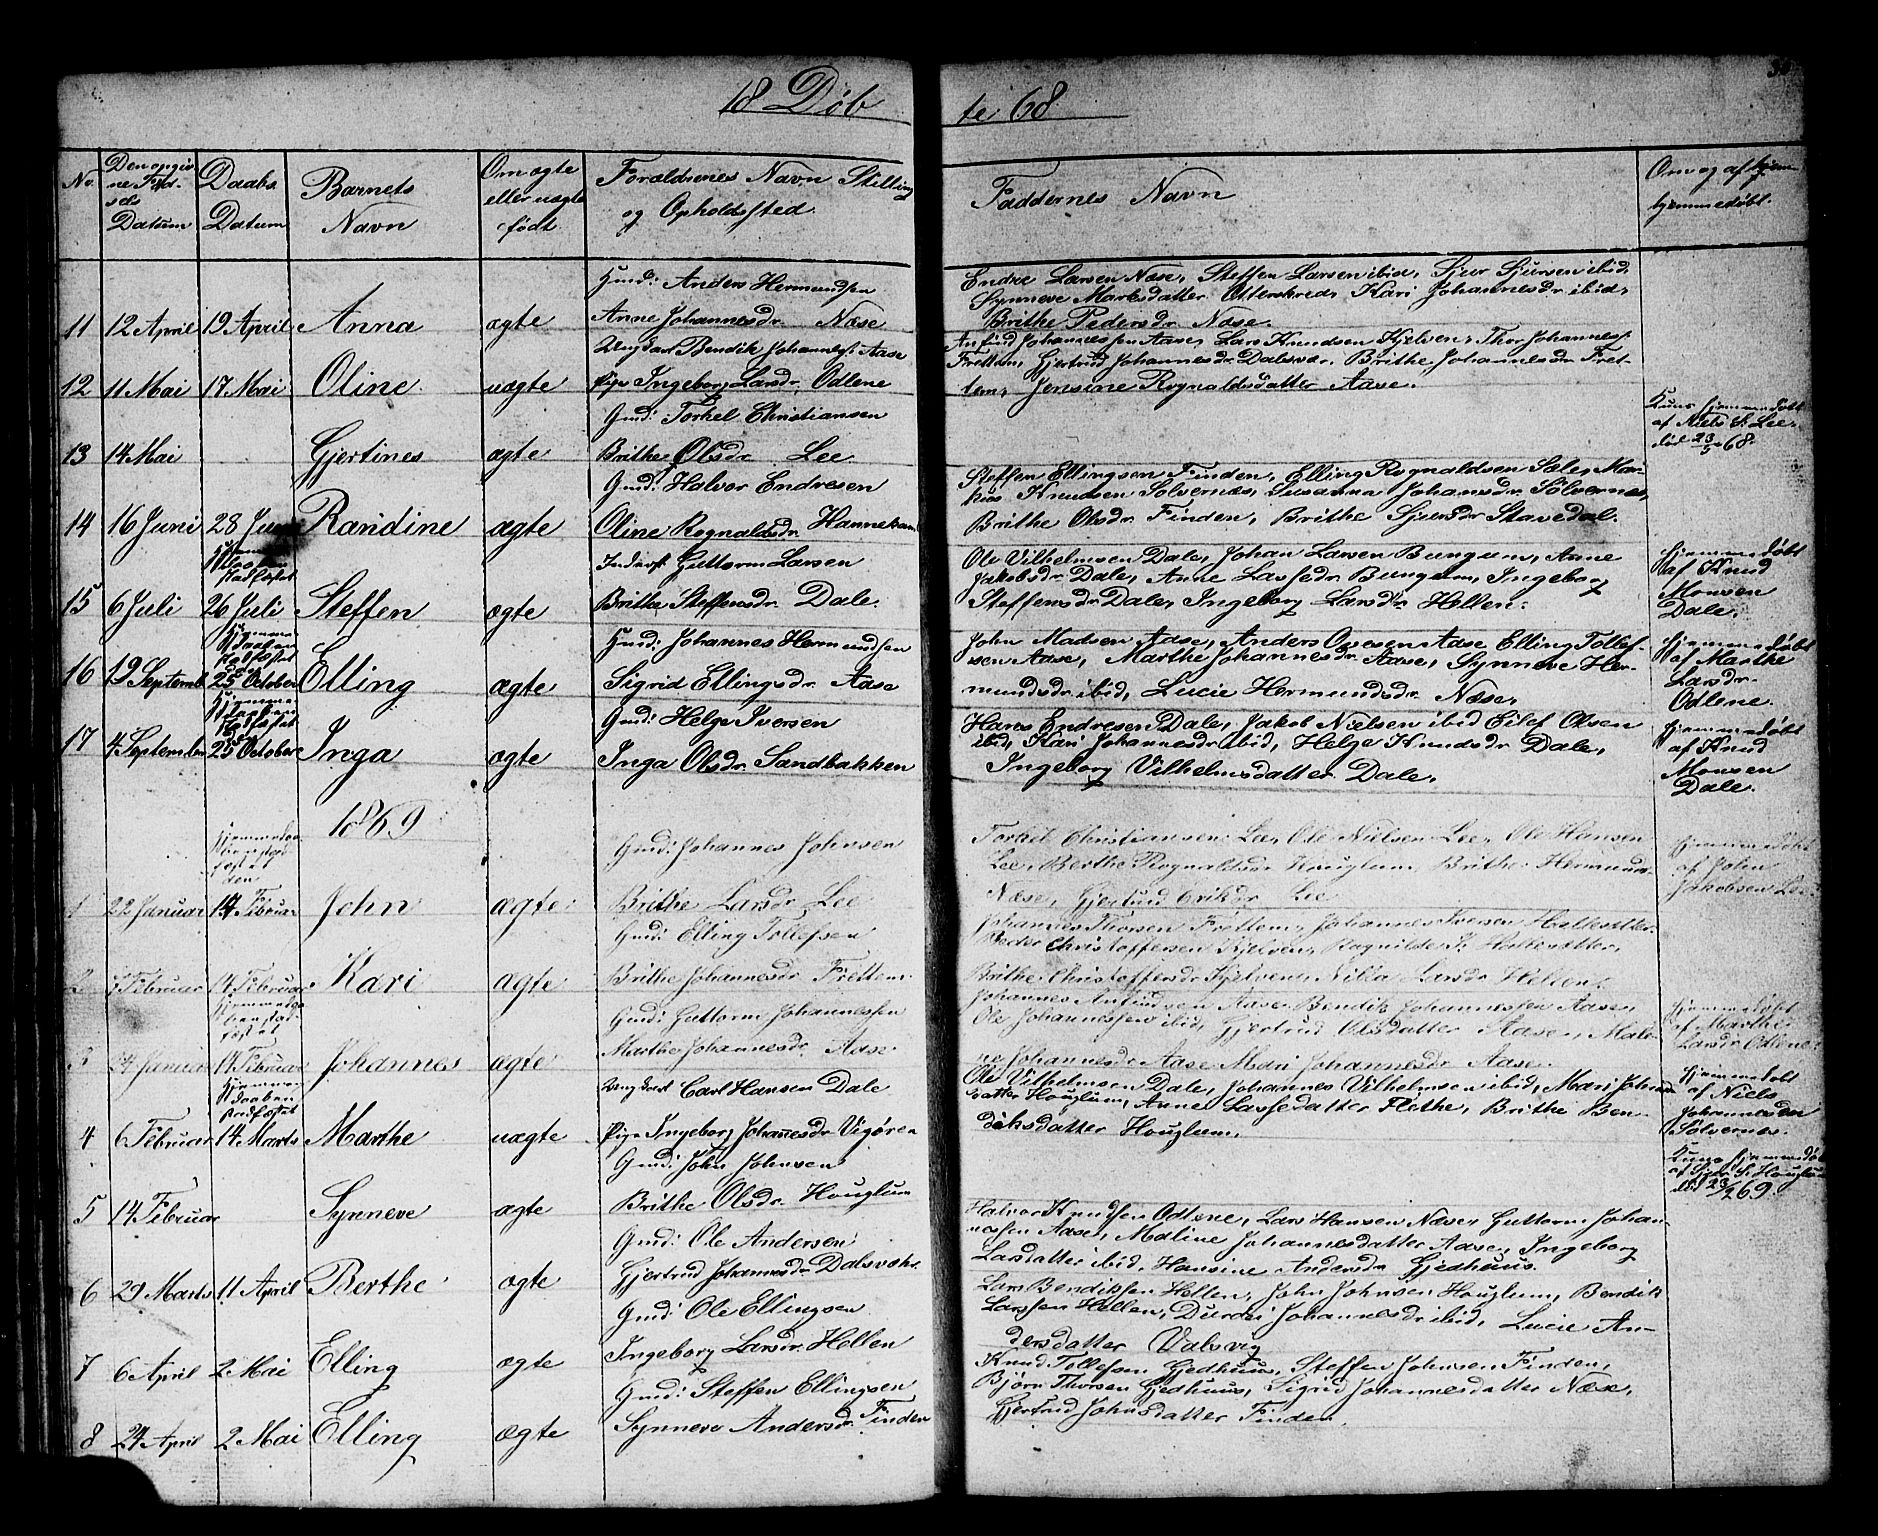 18 Døbte 68
No.
Den opgivne Fødsels Datum
Daabs Datum
Barnets Navn
Om ægte eller uægte født
Forældrenes Navn Stilling og Opholdssted.
Faddernes Navn
Om og af hvem hjemmedøbt.
11 12 April 19 April Anna ægte
Gmd: Anders Hermundsen
Anne Johannesdr. Næse
Endre Larsen Næse, Steffen Larsen ibid, Sjur Sjursen ibid,
Synneve Marksdatter Otterskred, Kari Johannesdr ibid,
Brithe Pedersdr. Næse.
12 11 Mai 17 Mai Oline uægte
Ungkarl Bendik Johannes. Aase
Pige Ingeborg Larsdr. Odlene
Anfind Johannessen Aase, Lars Knudsen Kjelven, Thor Johannes.
Frettem, Gjertrud Johannesdr Dalsvær. Brithe Johannesdr Fret-
tem, Jensine Rognaldsdatter Aase.
13 14 Mai Gjertines ægte
Gmd: Torkel Christiansen
Brithe Olsdr Lee
Kuns hjemmedøbt
af Niels S. Lee,
død 23/5 68.
14 16 Juni 28 Juni Randine ægte
Gmd: Halvor Endresen
Oline Rognaldsdr.
Steffen Ellingsen Finden, Elling Rognaldsen Sæle, Mar-
kus Knudsen Sølvernæs, Susanna Johansdr. Sølvernæs,
Brithe Olsdr. Finden, Brithe Sjursdr Stavedal.
15 6 Juli
Hjemme
Daaben
Stadfæstet
26 Juli Steffen ægte
Inderst Guttorm Larsen
Brithe Steffensdr. Dale.
Ole Vilhelmsen Dale, Johan Larsen Bungum, Anne
Jakobsdr Dale, Anne Lassedr Bungum, Ingeborg
Steffensdr Dale, Ingeborg Larsdr Hellen.
hjemmedøbt
af Knud
Monsen
Dale.
16 19 Septemb.
Hjemme-
daaben
stadfæstet
den
25 October Elling ægte
Gmd: Johannes Hermundsen
Sigrid Ellingsdr. Aase
John Madsen Aase, Anders Aase Elling Tollef-
sen Aase, Marthe Johannesdr. Aase, Synneve Her-
mundsdr ibid, Lucie Hermundsdr Næse,
hjemmedøbt
af Marthe
Larsdr.
Odlene.
17 4 September
Hjemme-
daaben
stadfæstet
den
25 October Inga ægte
Gmd: Helge Iversen
Inga Olsdr. Sandbakken
Hans Endresen Dale, Jakob Nielsen ibid Eilef Olsen
ibid, Kari Johannesdr ibid, Helge Knudsdr Dale,
Ingeborg Vilhelmsdatter Dale.
hjemmedøbt
af Knud
Monsen
Dale.
1869
1 22 Januar
Hjemmedaa
ben stad
fæstet
den
14 Februar John ægte
Gmd: Johannes Johnsen
Brithe Larsdr Lee
Torkel Christiansen Lee, Ole Nielsen Lee, Ole Hansen
Lee, Berthe Rognaldsdr Houglum, Brithe Hermunds
Næse, Gjertrud Eriksdr Lee
hjemmedøbt
af John
Jakobsen Lee
2 7 Februar 14 Februar Kari ægte
Gmd: Elling Tollefsen
Brithe Johannesdr Frettem
Johannes Thorsen Frettem, Johannes Iversen Hallesætter
Peder Christoffersen Kjelven, Ragnilde Hallesætter,
Brithe Christoffersdr Kjelven, Nilla Larsdr Hellen.
3 24 Januar
Hjemmedaa
ben stad-
fæstet
14 Februar Johannes ægte
Gmd: Guttorm Johannessen
Marthe Johannesdr. Aase
Johannes Anfindsen Aase Bendik Johannessen Aase,
Ole Johannessen ibid, Gjertrud Olsdatter Aase, Mali-
ne Johannesdr Aase Mari Johannesdr Aase.
hjemmedøbt
af Marthe
Larsdr Odlene
4 6 Februar
Hjemme-
daaben
stadfæstet
14 Marts Marthe uægte
Ungkarl Carl Hansen Dale
Pige Ingeborg Johannesdr Vigøren
Ole Vilhelmsen Dale, Johannes Vilhelmsen ibid, Mari Johans
datter Houglum, Anne Lassedatter Flethe, Brithe Ben-
diksdatter Houglum.
hjemmedøbt
af Niels
Johannesen
Sølvernes.
5 14 Februar Synneve ægte
Gmd: John Johnsen
Brithe Olsdr. Houglum
Kuns hjemmedøbt
af Sjur S. Houglum
død 23/2 69.
6 29 Marts 11 April Berthe ægte
Gmd: Ole Andersen
Gjertrud Johannesdr Dalsvær.
Halvor Knudsen Odlene, Lars Hansen Næse, Guttorm Johan-
nessen Aase, Maline Johannesdatter Aase, Ingeborg
Larsdatter ibid, Hansine Andersdr Gjedhuus.
7 6 April 2 Mai Elling ægte
Gmd: Ole Ellingsen
Ingeborg Larsdr. Hellen
Lars Bendiksen Hellen, John Johnsen Houglum, Bendik
Larssen Hellen, Durdei Johannesdr ibid, Lucie An-
dersdatter Valsvig
8 24 April 2 Mai Elling ægte
Gmd: Steffen Ellingsen
Synneve Andersdr. Finden
Knud Tollefsen Gjedhuus, Steffen Johnsen Finden,
Bjørn Thorsen Gjedhuus, Sigrid Johannesdatter Næse,
Gjertrud Johnsdatter Finden.